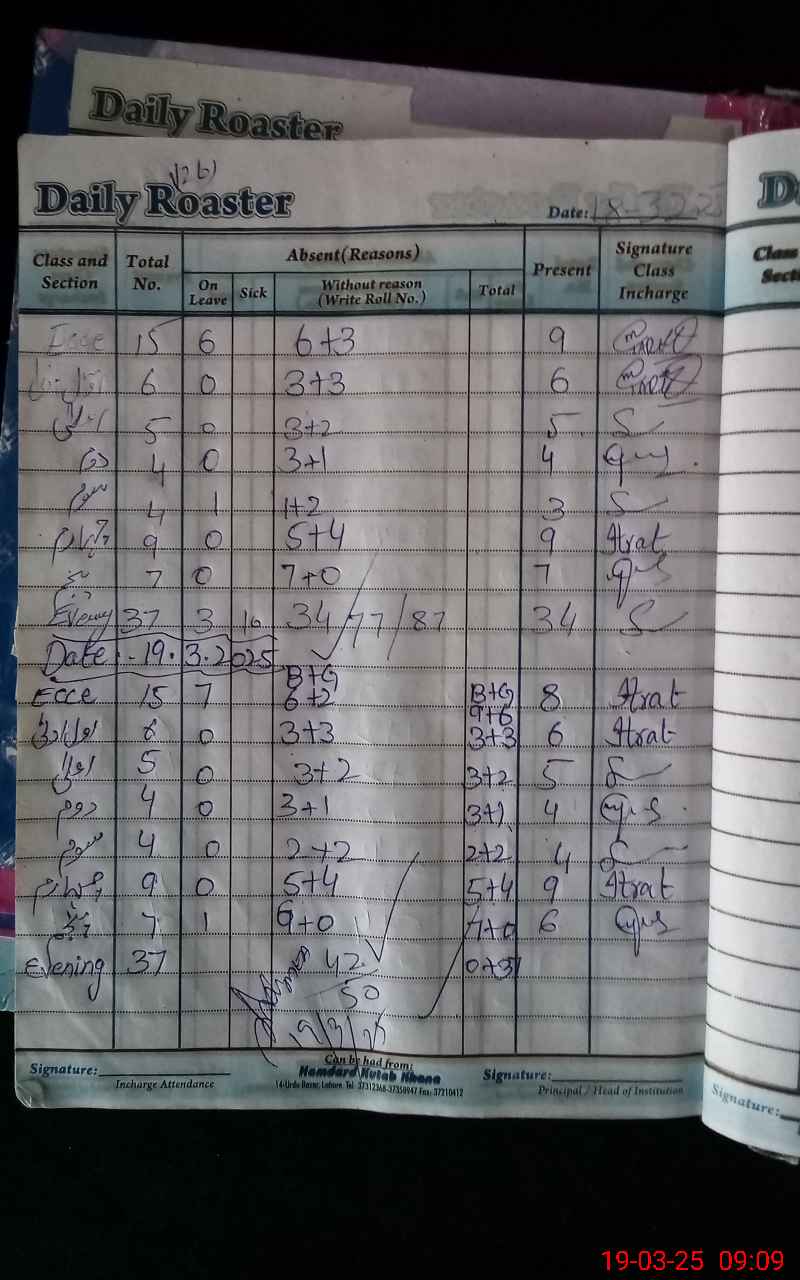 Daily Roaster
Daily Roaster
Date: 18-3-25
Class and Section Total No. Absent(Reasons) Present Signature Class Incharge
On Leave Sick Without reason (Write Roll No.) Total
Ecce 15 6 6+3 9
6 0 3+3 6
اعلیٰ 5 0 3+2 5
دوم 4 0 3+1 4
سوم 4 1 1+2 3
چہارم 9 0 5+4 9 Itrat
پنجم 7 0 7+0 7
Evening 37 3 34/77/87 34
Date - 19.3.2025
B+G B+G
Ecce 15 7 6+2 9+6 8 Itrat
6 0 3+3 3+3 6 Itrat
اعلیٰ 5 0 3+2 3+2 5
دوم 4 0 3+1 3+1 4
سوم 4 0 2+2 2+2 4
چہارم 9 0 5+4 5+4 9 Itrat
پنجم 7 1 6+0 7+0 6
Evening 37 42 0+37
50
19/3/25
Signature: Can be had from: Signature:
Incharge Attendance Hamdard Kutab Khana Principal / Head of Institution
14-Urdu Bazar, Lahore. Tel: 37312368-37358947 Fax: 37210412
Class
Signature:
19-03-25 09:09